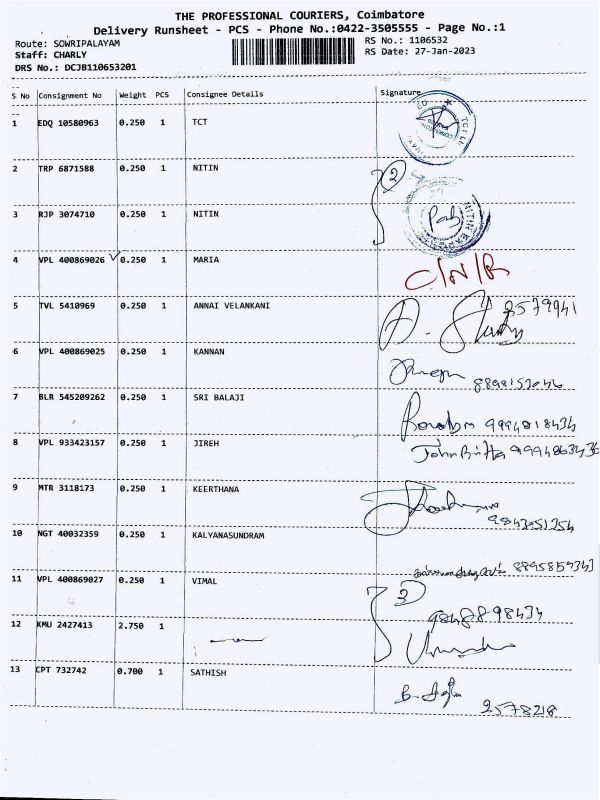 THE PROFESSIONAL COURIERS, Coimbatore
Delivery Runsheet - PCS - Phone No.:0422-3505555 - Page No.:1
Route: SOWRIPALAYAM RS No.: 1106532
Staff: CHARLY RS Date: 27-Jan-2023
DRS No.: DCJB110653201
S No Consignment No Weight PCS Consignee Details Signature
1 EDQ 10580963 0.250 1 TCT
2 TRP 6871588 0.250 1 NITIN 2
3 RJP 3074710 0.250 1 NITIN
4 VPL 400869026 0.250 1 MARIA C/N/R
5 TVL 5410969 0.250 1 ANNAI VELANKANI 2579941
6 VPL 400869025 0.250 1 KANNAN
7 BLR 545209262 0.250 1 SRI BALAJI 9994818434
8 VPL 933423157 0.250 1 JIREH John Britto
9 MTR 3118173 0.250 1 KEERTHANA
10 NGT 40032359 0.250 1 KALYANASUNDRAM
11 VPL 400869027 0.250 1 VIMAL
12 KMU 2427413 2.750 1
13 CPT 732742 0.700 1 SATHISH 2578218